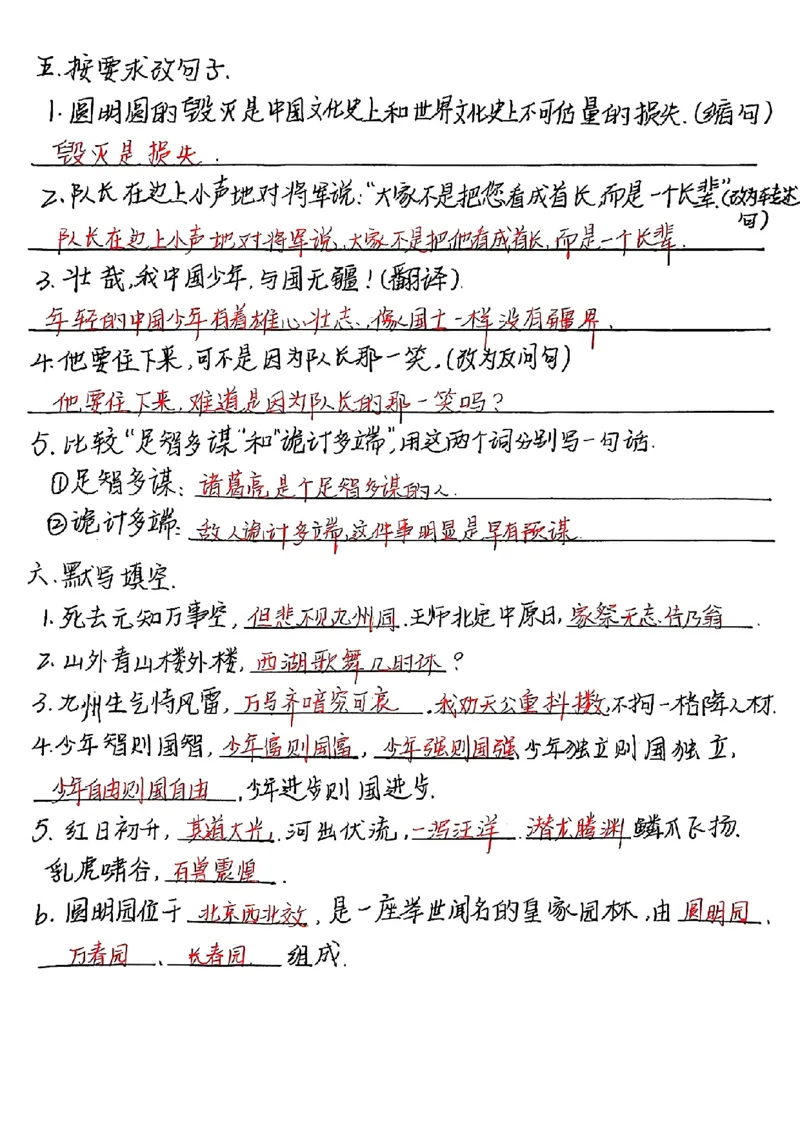 五.按要求改句子.
1.圆明圆的毁灭是中国文化史上和世界文化史上不可估量的损失.(缩句)
毁灭是损失.
2.队长在边上小声地对将军说:"大家不是把您看成首长,而是一个长辈."(改为转述句)
队长在边上小声地对将军说,大家不是把他看成首长,而是一个长辈.
3.壮哉,我中国少年,与国无疆!(翻译)
年轻的中国少年有着雄心壮志、像国土一样没有疆界.
4.他要住下来,可不是因为队长那一笑.(改为反问句)
他要住下来,难道是因为队长的那一笑吗?
5.比较"足智多谋"和"诡计多端",用这两个词分别写一句话.
①足智多谋:诸葛亮是个足智多谋的人.
②诡计多端:敌人诡计多端,这件事明显是早有预谋
六.默写填空.
1.死去元知万事空,但悲不见九州同.王师北定中原日,家祭无忘告乃翁.
2.山外青山楼外楼,西湖歌舞几时休?
3.九州生气恃风雷,万马齐喑究可哀.我劝天公重抖擞,不拘一格降人材.
4.少年智则国智,少年富则国富,少年强则国强,少年独立则国独立,
少年自由则国自由,少年进步则国进步.
5.红日初升,其道大光.河出伏流,一泻汪洋.潜龙腾渊鳞爪飞扬.
乳虎啸谷,百兽震惶.
6.圆明园位于北京西北郊,是一座举世闻名的皇家园林,由圆明园、
万春园、长春园组成.